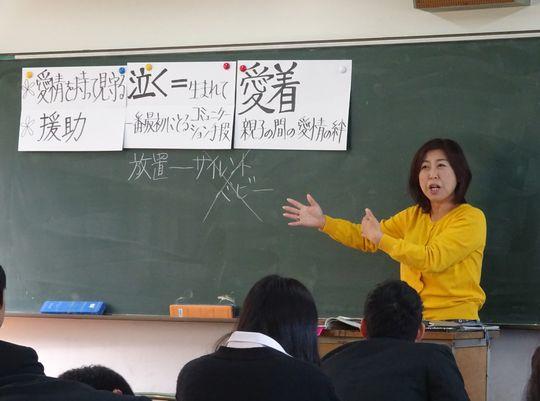 ※愛情を持て見守る
※援助
泣く=生まれて
一番最初にとるコミュニケーション手段
愛着
親子の間の愛情の絆
放置―サイレント
ベビー